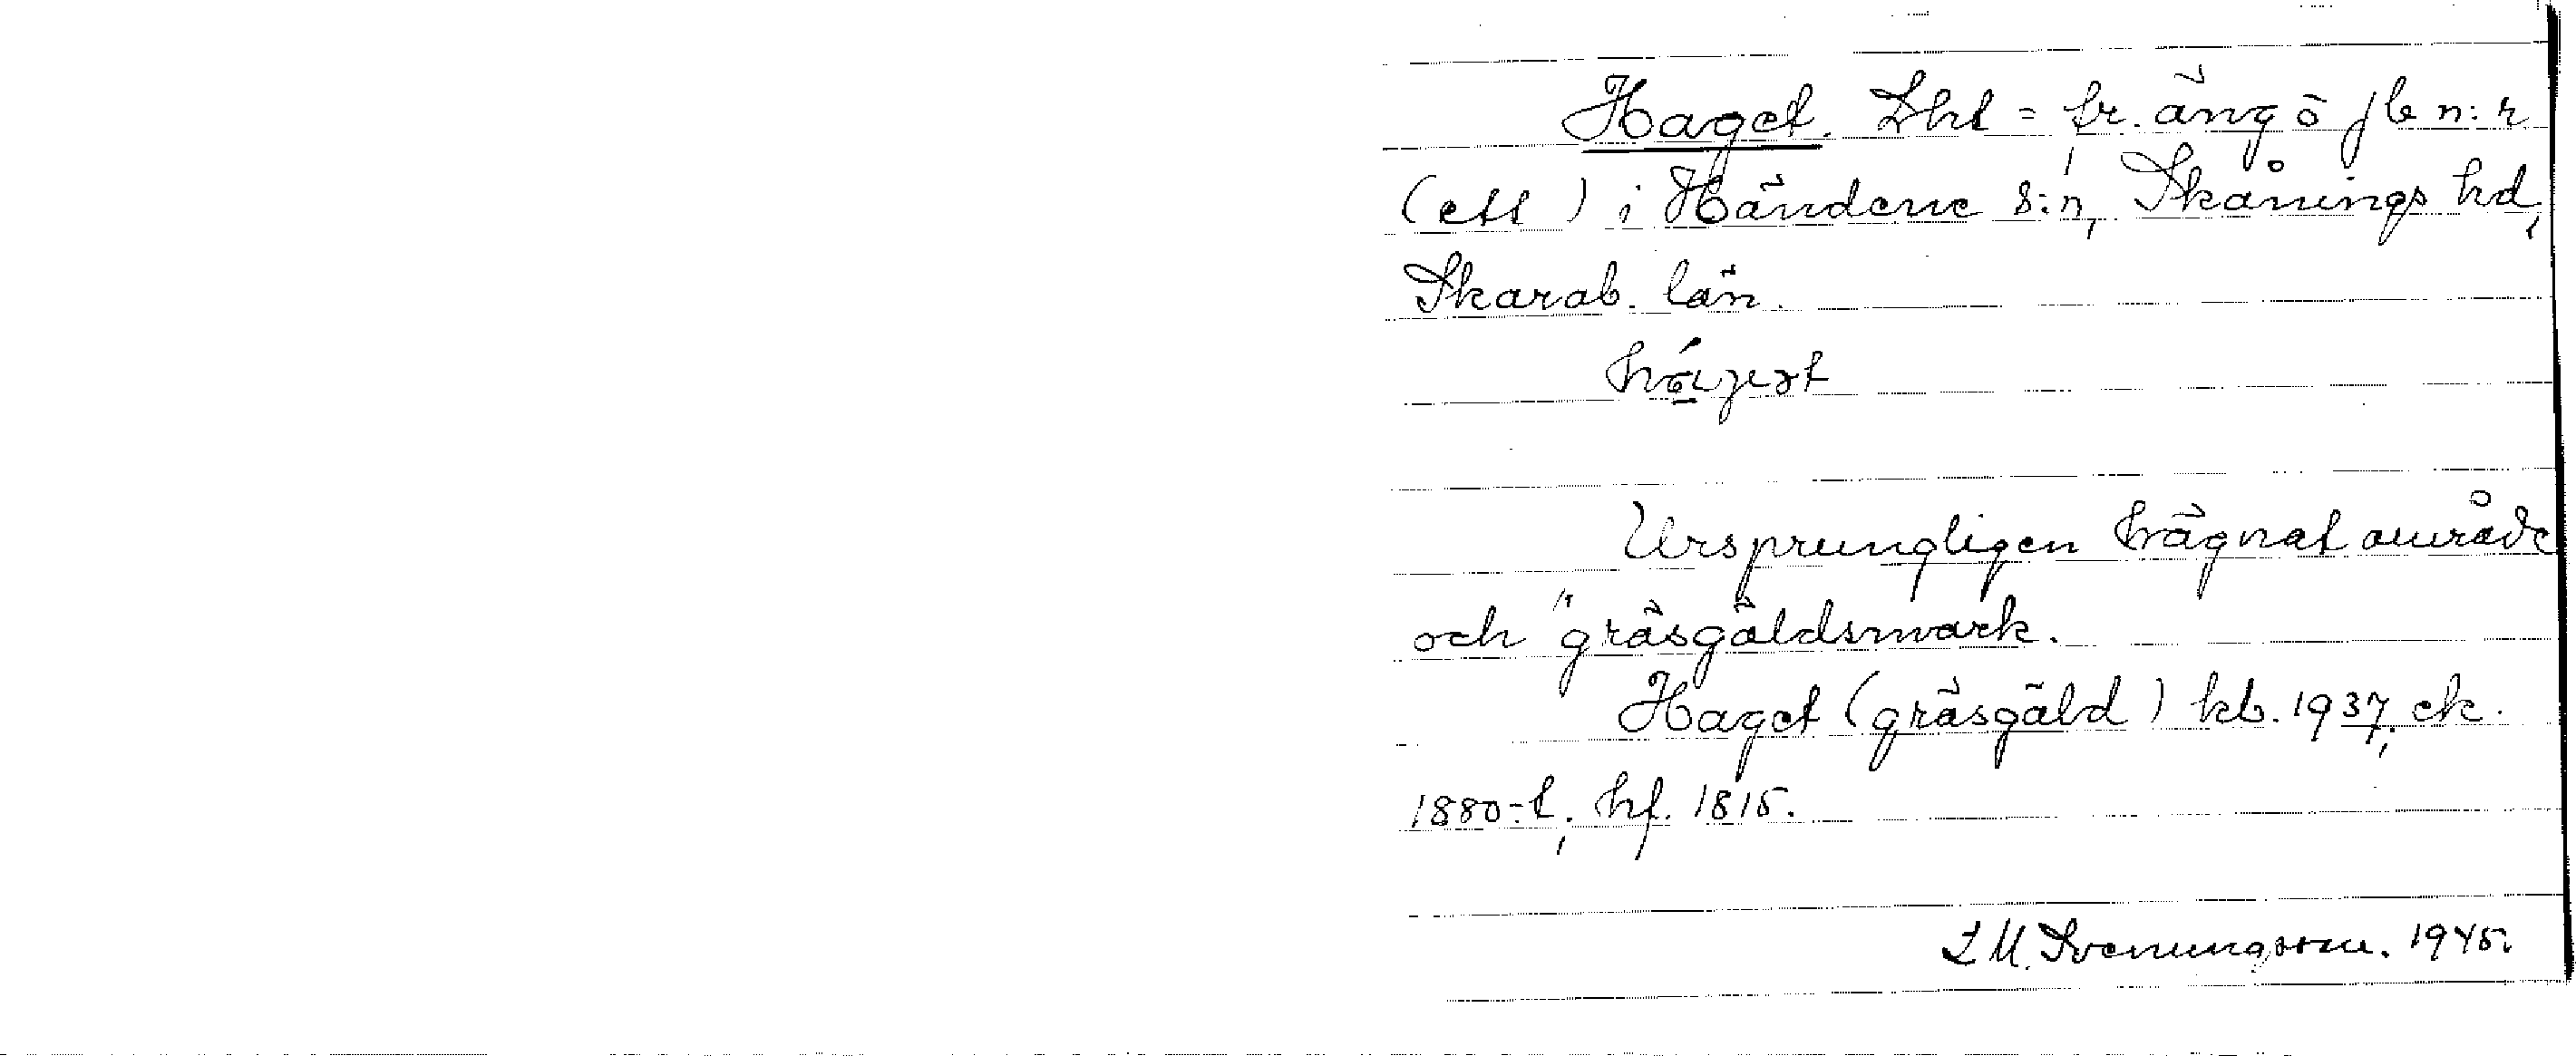 Haget. Lht = fr. äng ö jb n:r
(ett) i Händene s:n, Skånings hd,
Skarab. län.
Ursprungligen hägnat område
och "gräsgäldsmark.
Haget (gräsgäld) kb. 1937; ek.
1880-t; hf. 1815.
L M. Svenungsson. 1945.